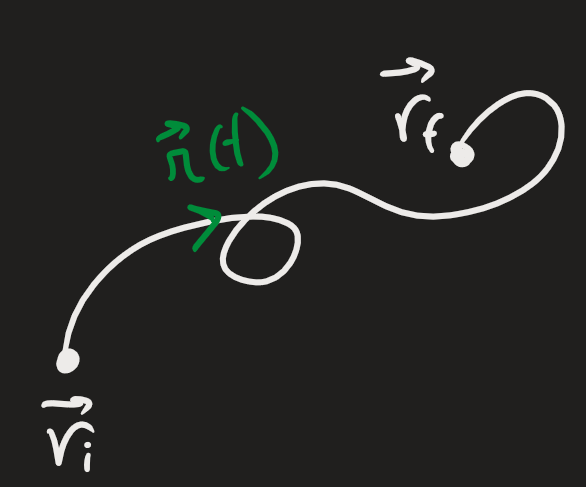 $\vec{r}_f$
$\vec{r}(t)$
$\vec{r}_i$